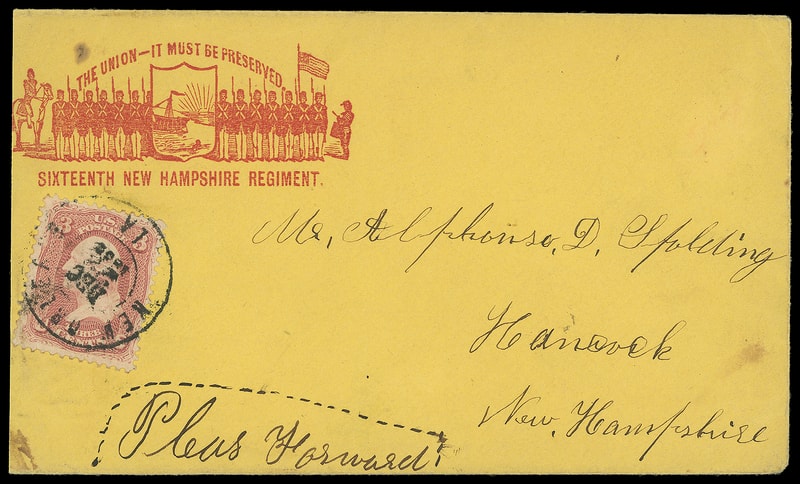 THE UNION—IT MUST BE PRESERVED.
SIXTEENTH NEW HAMPSHIRE REGIMENT.
3 U.S. 3
POSTAGE
NEW ORLEANS LA
DEC
Mr, Alphonso, D, Spolding
Hancock
New, Hampshire
Pleas Forward,